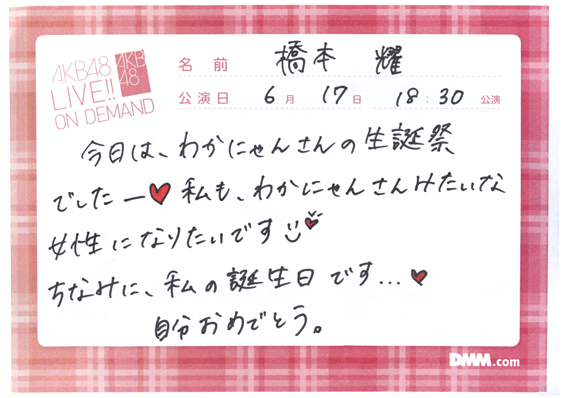 AKB48
LIVE!!
ON DEMAND
AKB
48
名前 橋本 耀
公演日 6月 17日 18:30 公演
今日は、わかにゃんさんの生誕祭
でしたー♥私も、わかにゃんさんみたいな
女性になりたいです
ちなみに、私の誕生日です...♥
自分おめでとう。
DMM.com